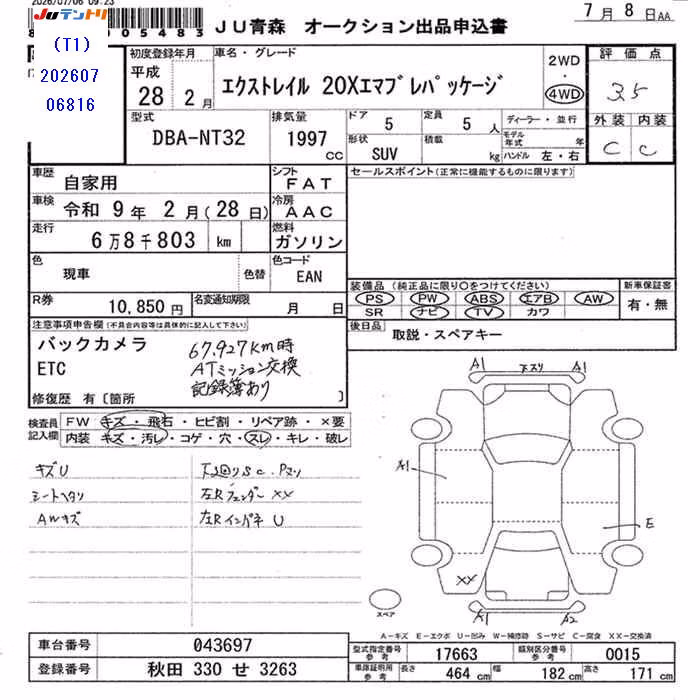 2026/07/06 09:23
JUテントリ
05483
JU青森 オークション出品申込書
7月8日AA
(T1)
202607
06816
初度登録年月
平成
28 2月
車名・グレード
エクストレイル 20Xエマブレパッケージ
2WD
・
4WD
評価点
3.5
外装 内装
C C
型式
DBA-NT32
排気量
1997
CC
ドア
5
定員
5人
ディーラー・並行
モデル年式 年
形状
SUV
積載
kg
ハンドル 左・右
車歴
自家用
シフト
FAT
セールスポイント(正常に機能するものに限ります)
車検
令和 9年 2月(28日)
冷房
AAC
走行
6万8千803 km
燃料
ガソリン
色
現車
色替
色コード
EAN
装備品(純正品に限り○をつけてください)
PS PW ABS エアB AW
SR ナビ TV カワ
新車保証書
有・無
R券
10,850円
名変通知期限
月 日
後日品
取説・スペアキー
注意事項申告欄(不具合内容等は具体的に記入して下さい)
バックカメラ
ETC
67,927km時
ATミッション交換
記録簿あり
修復歴 有〔箇所 〕
検査員記入欄
FW キズ・飛石・ヒビ割・リペア跡・×要
内装 キズ・汚レ・コゲ・穴・スレ・キレ・破レ
キズU
シートヘタリ
AWキズ
下廻りSC.Pスリ
左Rフェンダー XX
左Rインパネ U
A1 下スリ A1
A1
E
XX
A1 A2
スペア
A-キズ E-エクボ U-凹み W-補修跡 S-サビ C-腐食 XX-交換済
車台番号
043697
型式指定番号参考
17663
類別区分番号参考
0015
登録番号
秋田 330 せ 3263
車庫証明用参考
長さ 464 cm 幅 182 cm 高さ 171 cm